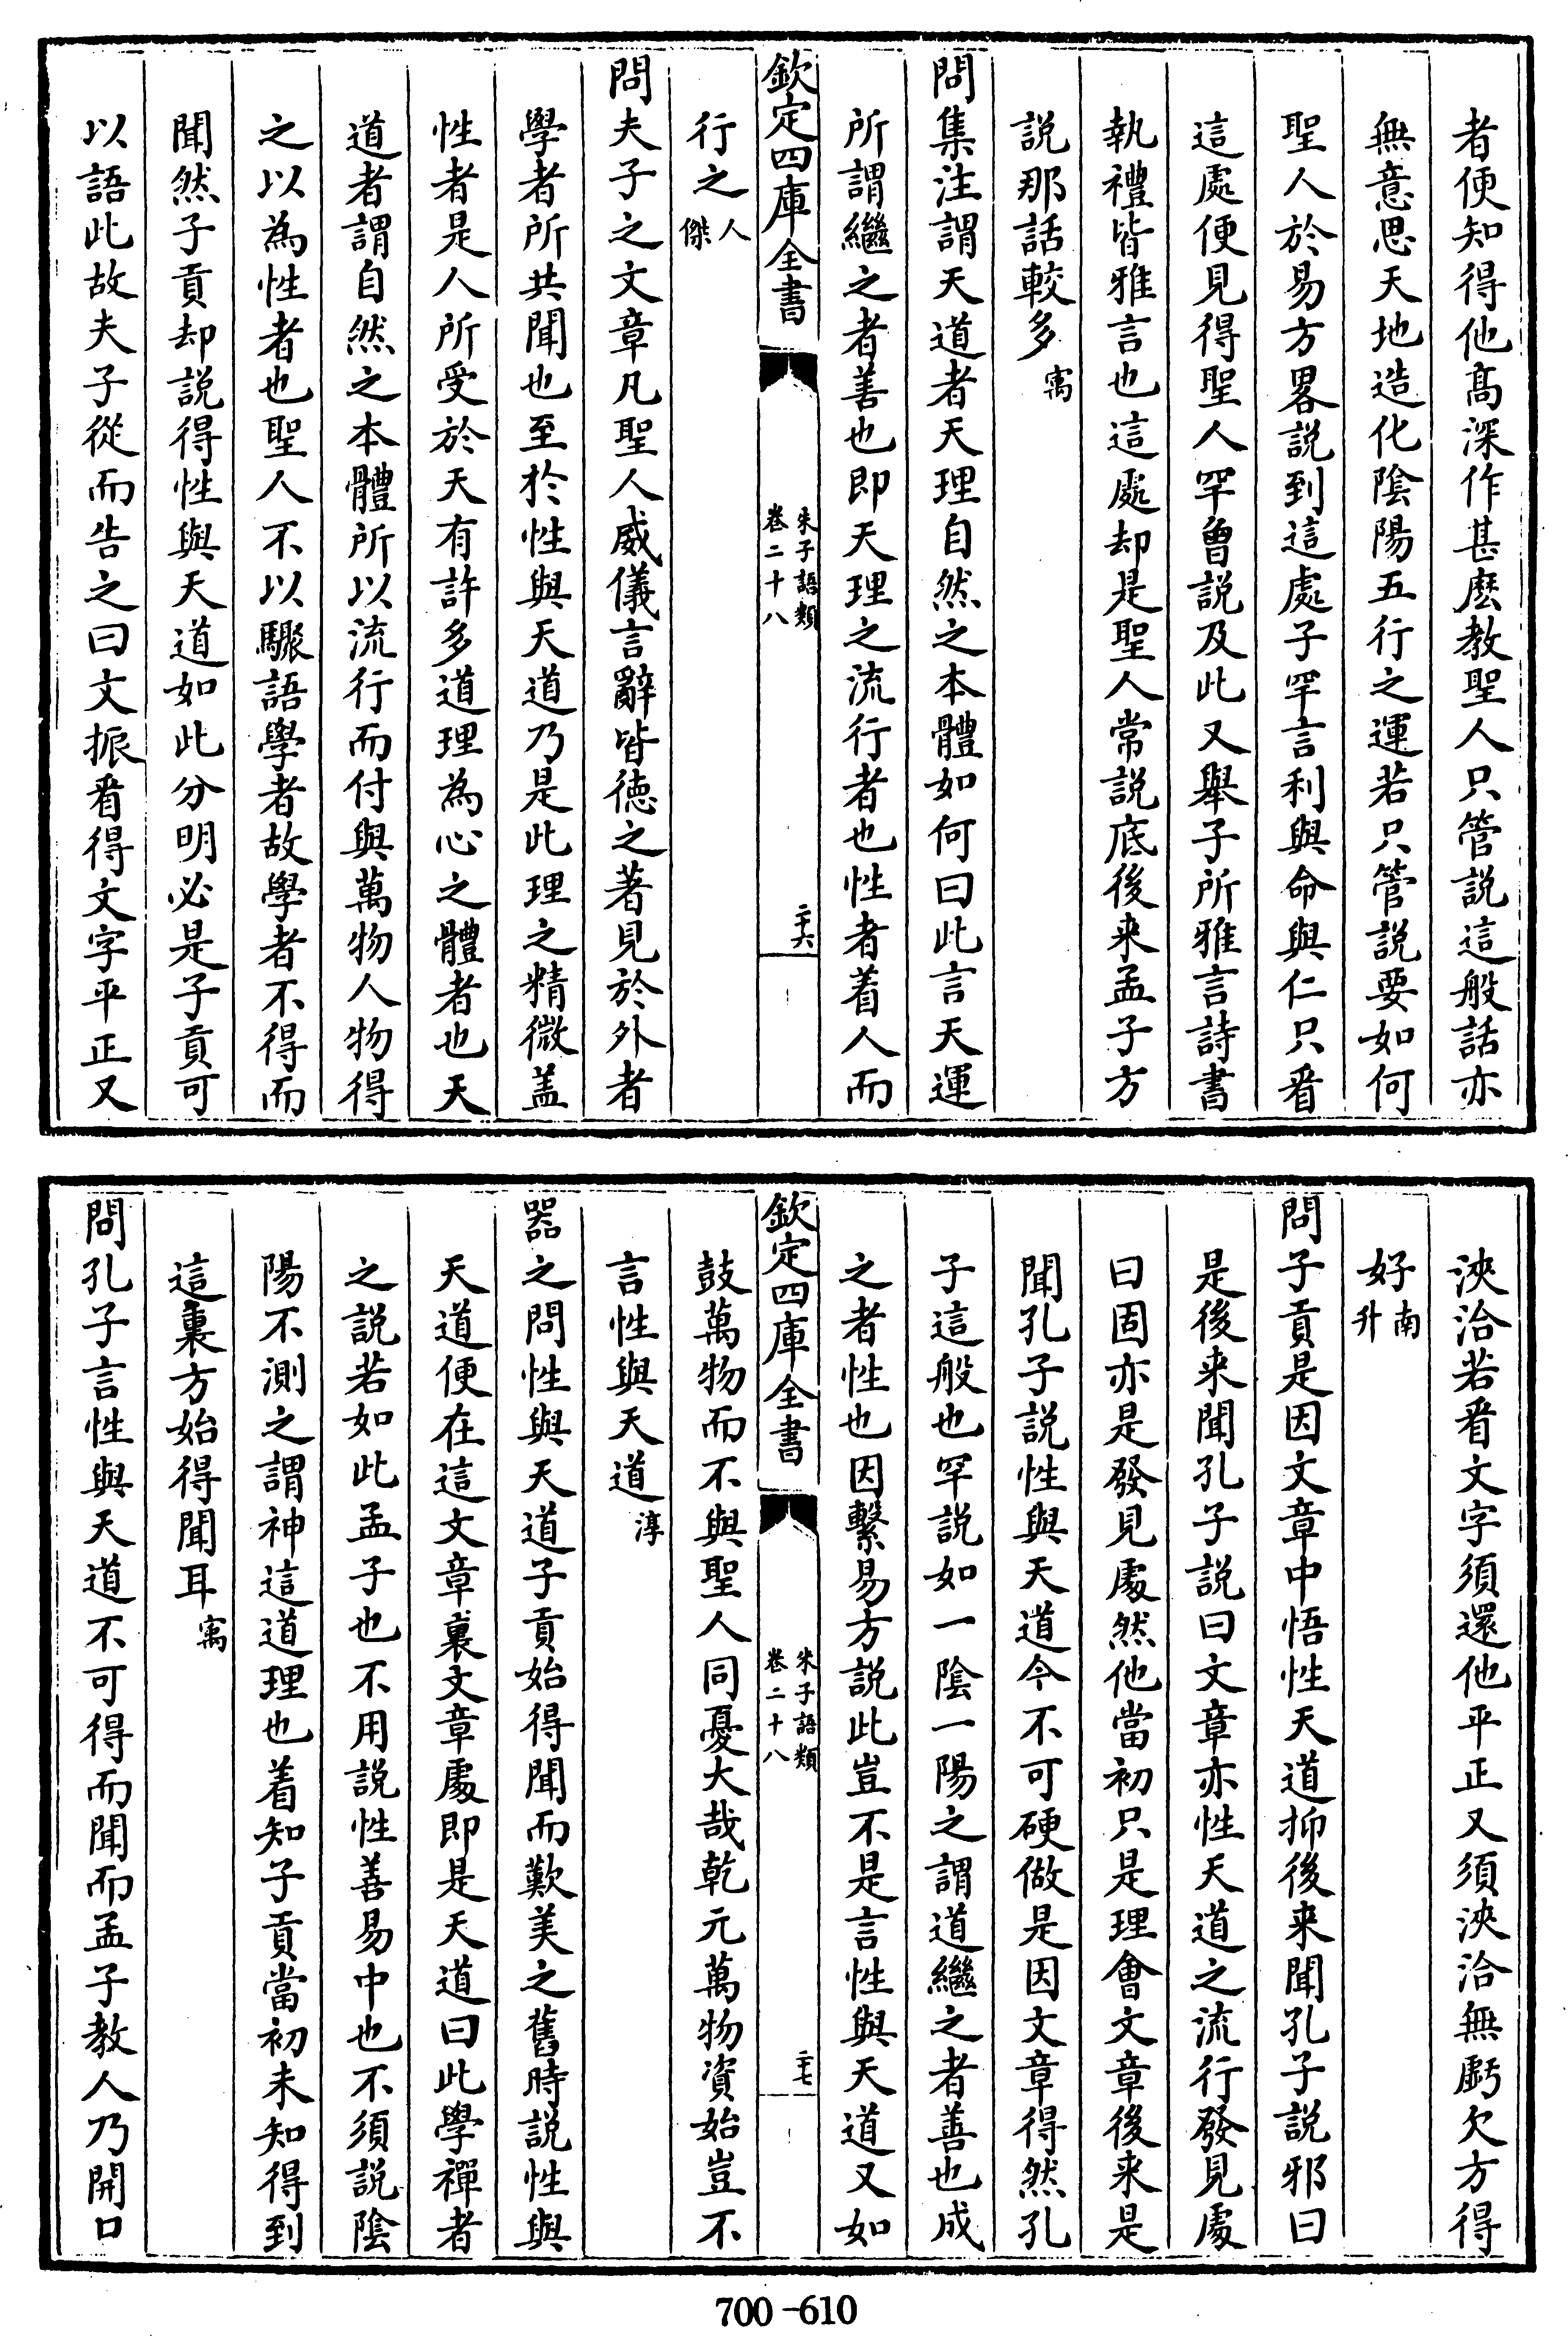 者便知得他髙深作甚麽教聖人只管説這般話亦
無意思天地造化陰陽五行之運若只管説要如何
聖人於易方畧説到這處子罕言利與命與仁只看
這處便見得聖人罕曾説及此又舉子所雅言詩書
執禮皆雅言也這處却是聖人常説底後来孟子方
説那話較多㝢
問集注謂天道者天理自然之本體如何曰此言天運
所謂繼之者善也即天理之流行者也性者着人而
欽定四庫全書
朱子語類
卷二十八
二十六
行之人傑
問夫子之文章凡聖人威儀言辭皆徳之著見於外者
學者所共聞也至於性與天道乃是此理之精微盖
性者是人所受於天有許多道理為心之體者也天
道者謂自然之本體所以流行而付與萬物人物得
之以為性者也聖人不以驟語學者故學者不得而
聞然子貢却説得性與天道如此分明必是子貢可
以語此故夫子從而告之曰文振看得文字平正又
浹洽若看文字須還他平正又須浹洽無虧欠方得
好南升
問子貢是因文章中悟性天道抑後来聞孔子説邪曰
是後来聞孔子説曰文章亦性天道之流行發見處
曰固亦是發見處然他當初只是理會文章後来是
聞孔子説性與天道今不可硬做是因文章得然孔
子這般也罕説如一陰一陽之謂道繼之者善也成
之者性也因繫易方説此豈不是言性與天道又如
欽定四庫全書
朱子語類
卷二十八
二十七
鼓萬物而不與聖人同憂大哉乾元萬物資始豈不
言性與天道淳
器之問性與天道子貢始得聞而歎美之舊時説性與
天道便在這文章裏文章處即是天道曰此學禪者
之説若如此孟子也不用説性善易中也不須説陰
陽不測之謂神這道理也着知子貢當初未知得到
這裏方始得聞耳㝢
問孔子言性與天道不可得而聞而孟子教人乃開口
700-610